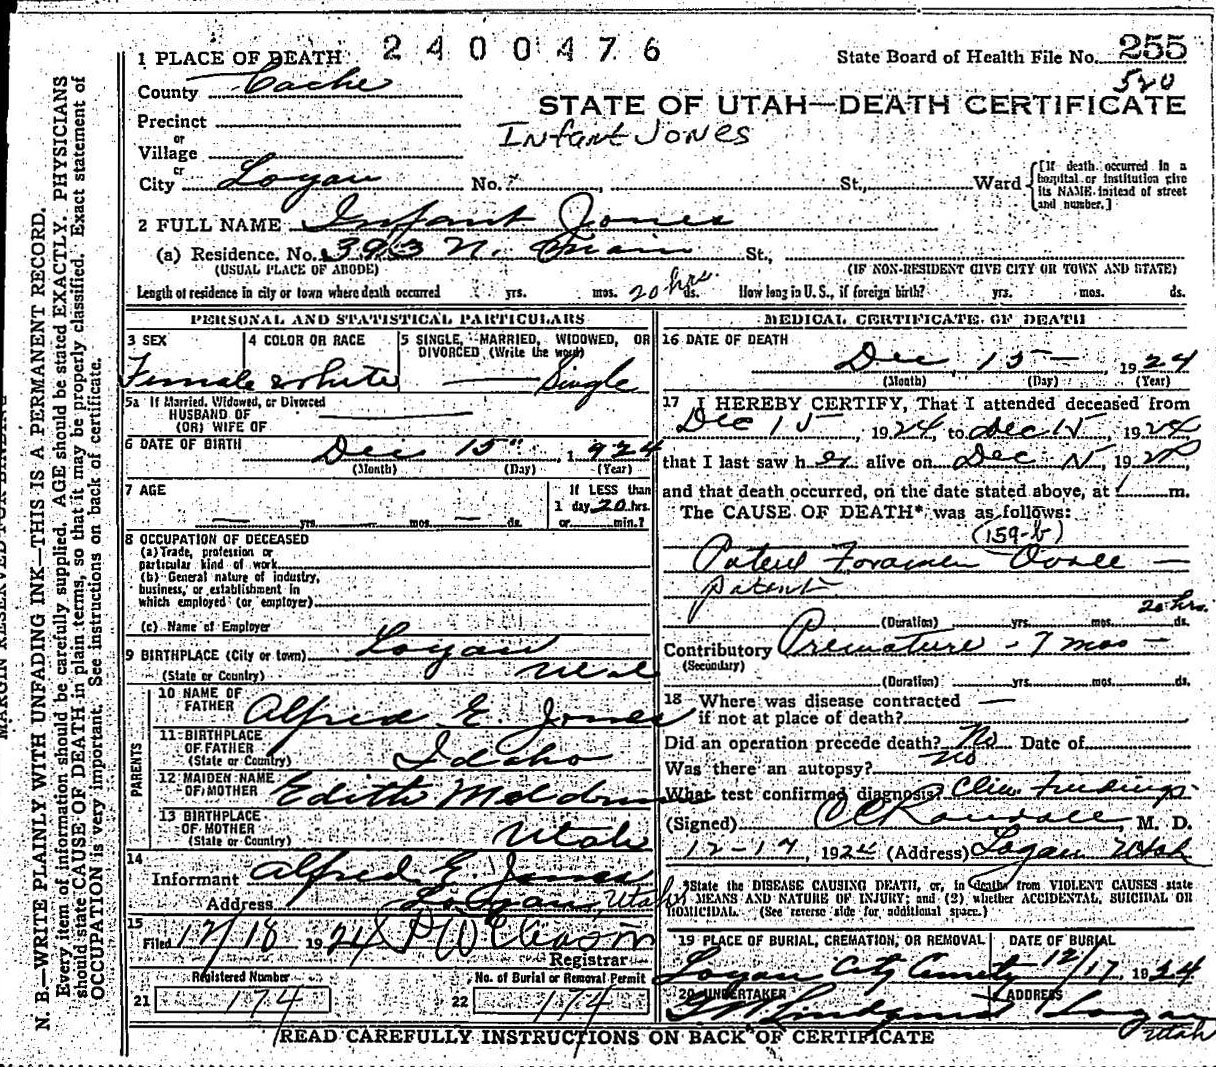 1 PLACE OF DEATH 2400476 State Board of Health File No. 255
County Cache 520
STATE OF UTAH—DEATH CERTIFICATE
Precinct
Infant Jones
or
Village
or
City Logan No. St., Ward [If death occurred in a hospital or institution give its NAME instead of street and number.]
2 FULL NAME Infant Jones
(a) Residence. No. 393 N. Main St.,
(USUAL PLACE OF ABODE) (IF NON-RESIDENT GIVE CITY OR TOWN AND STATE)
Length of residence in city or town where death occurred yrs. mos. 20 hrs. ds. How long in U.S., if foreign birth? yrs. mos. ds.
PERSONAL AND STATISTICAL PARTICULARS
3 SEX 4 COLOR OR RACE 5 SINGLE, MARRIED, WIDOWED, OR
DIVORCED (Write the word)
Female White — Single
5a If Married, Widowed, or Divorced
HUSBAND OF
(OR) WIFE OF
6 DATE OF BIRTH Dec 15 1924
(Month) (Day) (Year)
7 AGE If LESS than
1 day 20 hrs.
— yrs. — mos. — ds. or min.?
8 OCCUPATION OF DECEASED
(a) Trade, profession or
particular kind of work
(b) General nature of industry,
business, or establishment in
which employed (or employer)
(c) Name of Employer
9 BIRTHPLACE (City or town) Logan
(State or Country) Utah
PARENTS
10 NAME OF
FATHER Alfred E. Jones
11 BIRTHPLACE
OF FATHER
(State or Country) Idaho
12 MAIDEN NAME
OF MOTHER Edith Meldrum
13 BIRTHPLACE
OF MOTHER
(State or Country) Utah
14
Informant Alfred E. Jones
Address Logan, Utah
15
Filed 12/18 1924
Registrar
Registered Number No. of Burial or Removal Permit
21 174 22 174
MEDICAL CERTIFICATE OF DEATH
16 DATE OF DEATH
Dec 15 — 1924
(Month) (Day) (Year)
17 I HEREBY CERTIFY, That I attended deceased from
Dec 15, 1924, to Dec 15, 1924
that I last saw her alive on Dec 15, 1924
and that death occurred, on the date stated above, at m.
The CAUSE OF DEATH* was as follows:
(159-b)
Patent Foramen Ovale —
patent
20 hrs.
(Duration) yrs. mos. ds.
Contributory Premature - 7 mos —
(Secondary)
(Duration) yrs. mos. ds.
18 Where was disease contracted —
if not at place of death?
Did an operation precede death? No Date of
Was there an autopsy? No
What test confirmed diagnosis? Clin. Findings
(Signed) M. D.
12-17, 1924 (Address) Logan Utah
*State the DISEASE CAUSING DEATH, or, in deaths from VIOLENT CAUSES state
MEANS AND NATURE OF INJURY; and (2) whether ACCIDENTAL, SUICIDAL OR
HOMICIDAL. (See reverse side for additional space.)
19 PLACE OF BURIAL, CREMATION, OR REMOVAL DATE OF BURIAL
Logan City Cemetery 12/17, 1924
20 UNDERTAKER ADDRESS
Lindquist Logan
Utah
READ CAREFULLY INSTRUCTIONS ON BACK OF CERTIFICATE
MARGIN RESERVED FOR BINDING
N. B.—WRITE PLAINLY WITH UNFADING INK—THIS IS A PERMANENT RECORD.
Every item of information should be carefully supplied. AGE should be stated EXACTLY. PHYSICIANS
should state CAUSE OF DEATH in plain terms, so that it may be properly classified. Exact statement of
OCCUPATION is very important. See instructions on back of certificate.